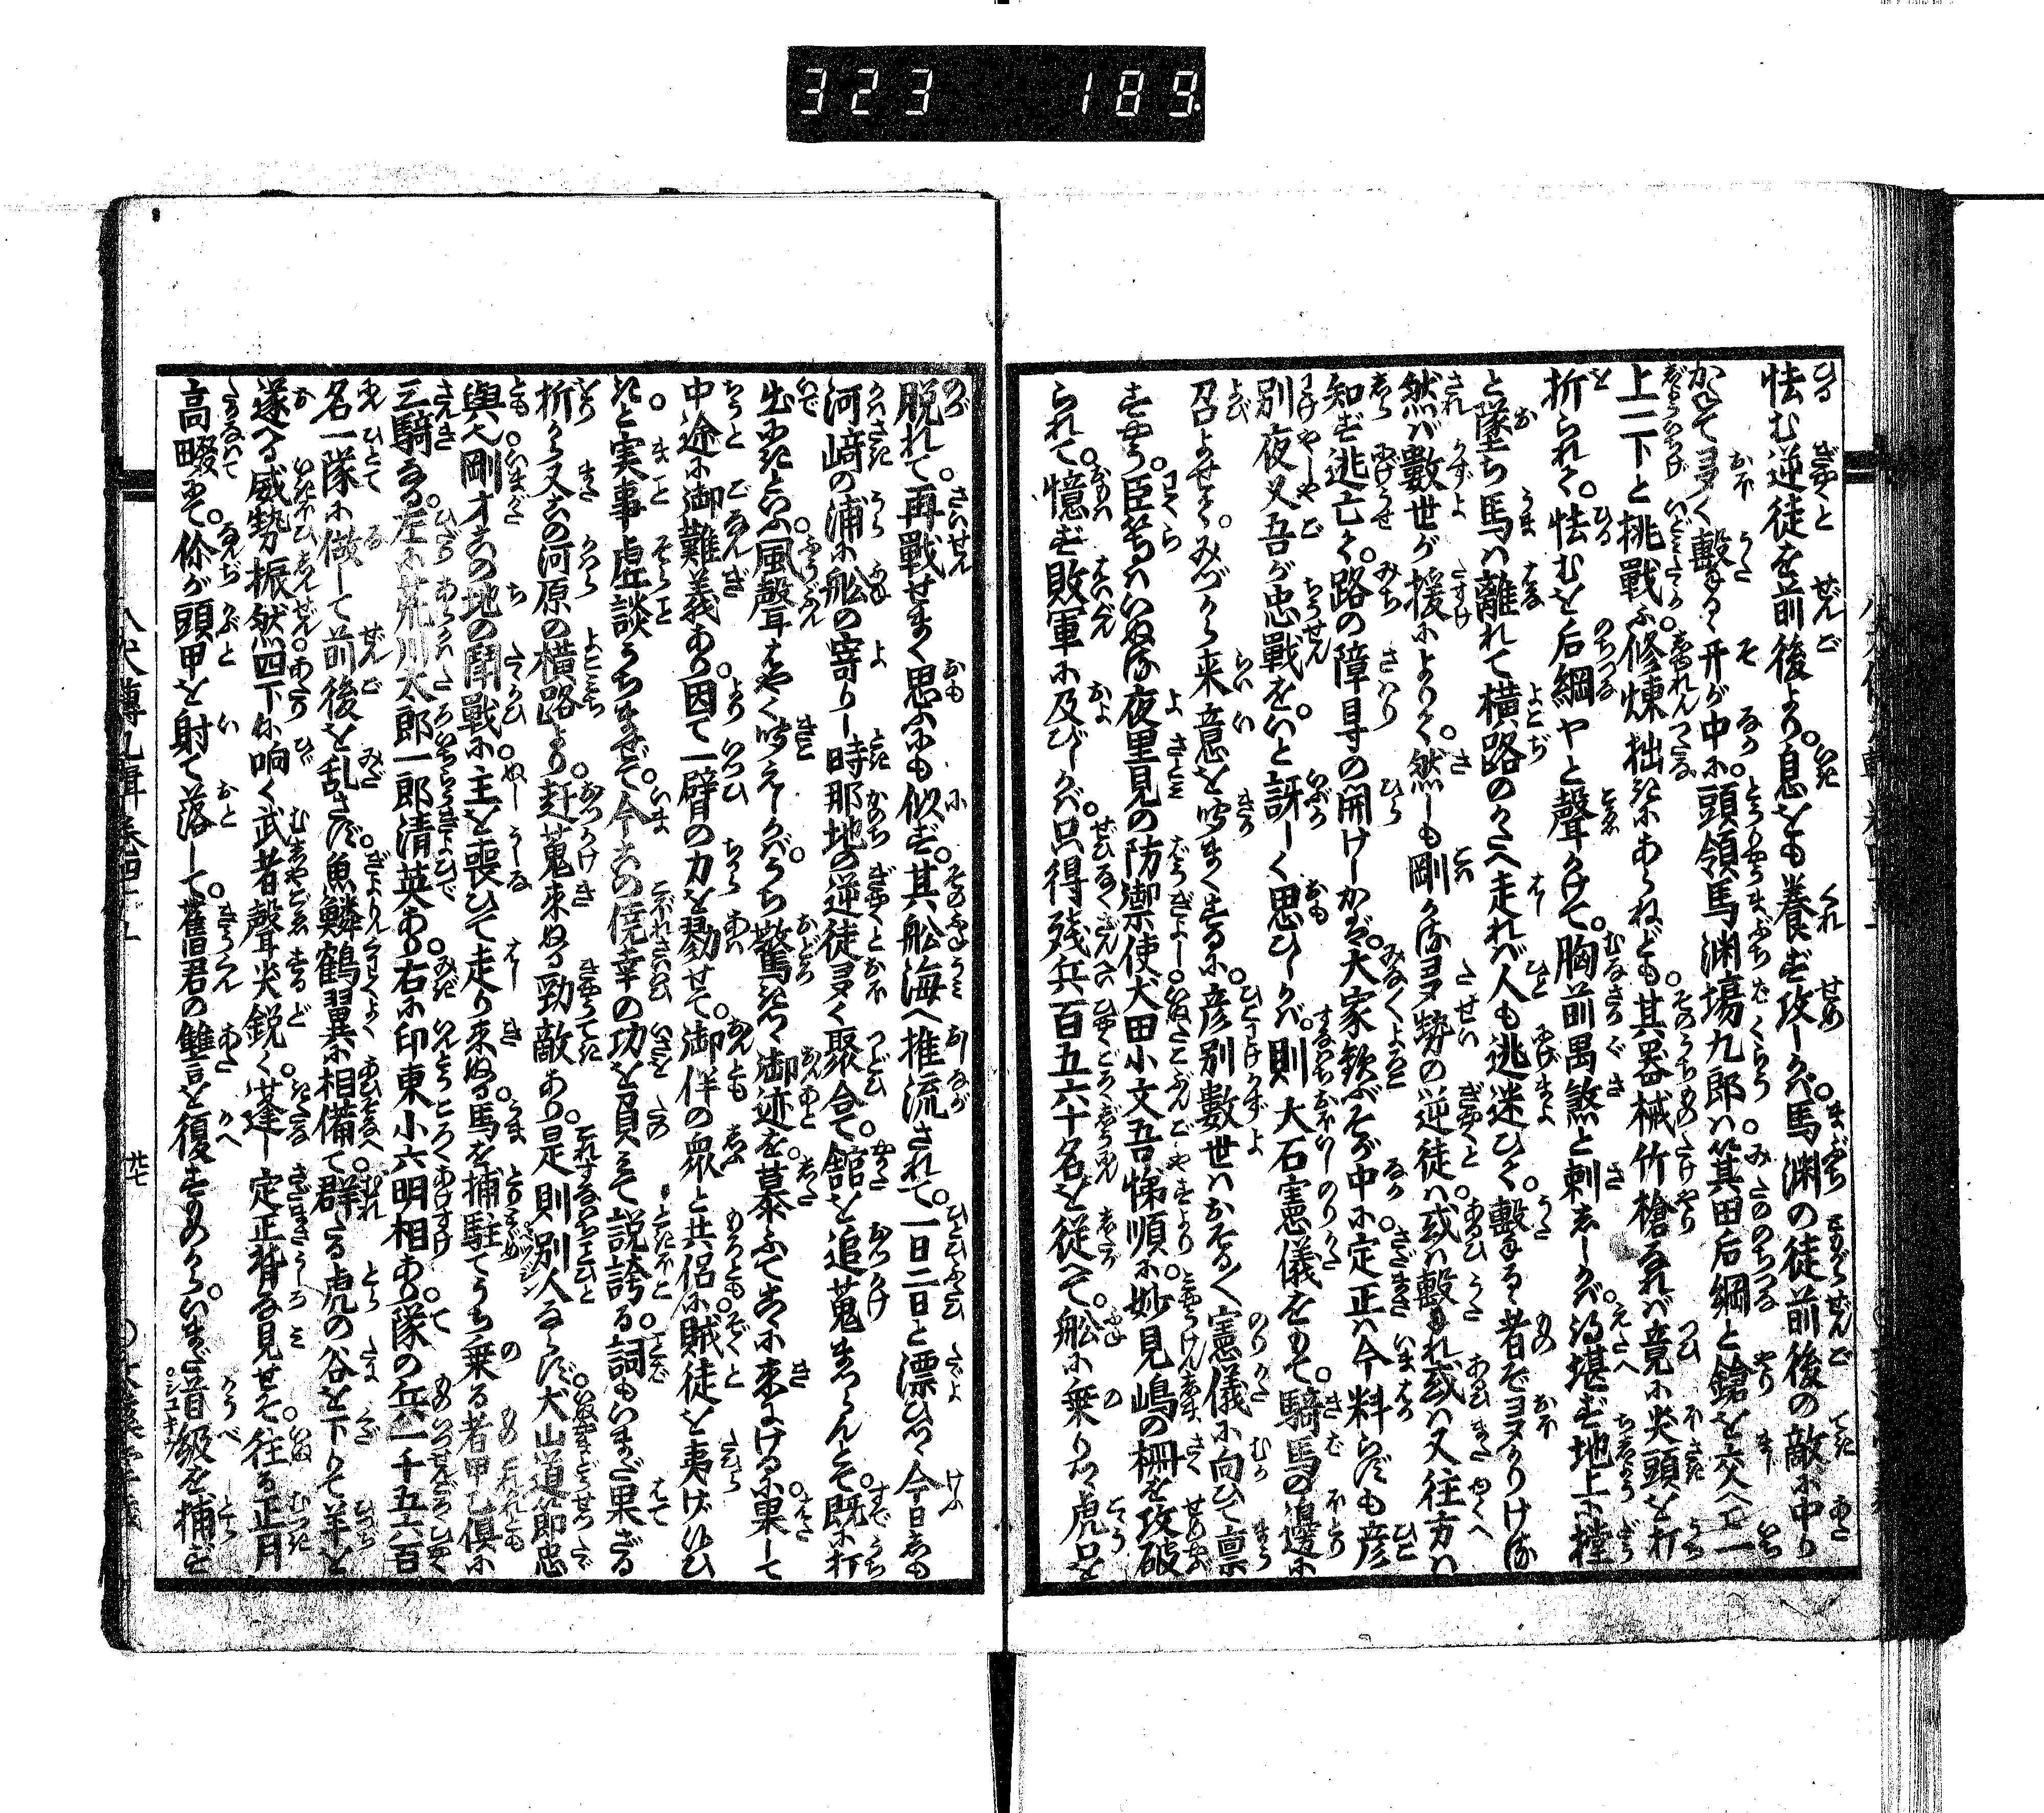 323 189
怯む逆徒を前後より。息をも養ず攻しかバ。馬渊の徒前後の敵に中り
かねて多く撃るゝ。开が中に。頭領馬渊塲九郎ハ。箕田后綱と鎗を交へて。一
上一下と挑戰ふ。修煉拙きにあらねども。其器械竹槍なれバ。竟に尖頭を打
折られて。怯むを后綱ヤと聲かけて。胸前禺煞と刺しかバ。得堪ず地上に摚
と墜ち馬ハ離れて横路のかたへ走れバ人も逃迷ひて。撃るゝ者ぞ多かりける
然バ數世が援によりて。然しも剛かる多勢の逆徒ハ。或ハ撃れ或ハ又往方ハ
知ず逃亡て。路の障导の開けしかバ。大家歓ぶそが中に。定正ハ今料らずも彦
別夜叉吾が忠戰を。いと訝しく思ひしかバ。則大石憲儀をもて。騎馬の邊に
召よせて。みづから来意を咛まくするに。彦別數世ハおそる〳〵憲儀に向ひて禀
すやう。臣等ハいぬる夜里見の防禦使犬田小文吾悌順に。妙見嶋の柵を攻破
られて。憶ず敗軍に及びしかバ。只得残兵百五六十名を従へて。舩に乗りつゝ虎口を
脱れて。再戰せまく思ふにも似ず。其舩海へ推流されて。一日二日と漂ひつゝ今日しも
河﨑の浦に舩の寄りし時那地の逆徒多く聚合て。舘を追蒐まつらんとて。既に打
出にきといふ風聲はやく咛えしかバ。うち驚きつゝ御迹を。慕ふてこゝに来にけるに。果して
中途に御難義あり。因て一臂の力を勠せて。御伴の衆と共侶に賊徒を夷げ候ひ
きと。実事虚談うちまぜて。今この僥幸の功を負ミて説誇る。詞もいまだ果ざる
折から又この河原の横路より。赶蒐来ぬる勁敵あり。是則別人ならず。犬山道節忠
與。いぬる剛才この地の鬪戰に。主を喪ひて走り来ぬる。馬を捕駐てうち乗る者甲乙倶に
三騎なる。左に荒川太郎一郎清英あり。右に印東小六明相あり。隊の兵一千五六百
名一隊に做して前後を乱さず。魚鱗鶴翼に相備て。群たる虎の谷を下りて羊を
逐へる威勢振然。四下に响く武者聲尖鋭く。蓬し定正背な見せそ往る正月
高畷にて。伱が頭甲を射て落して。舊君の讐を復すものから。いまだ首級を捕ず
八犬傳九輯巻四十上
廿七